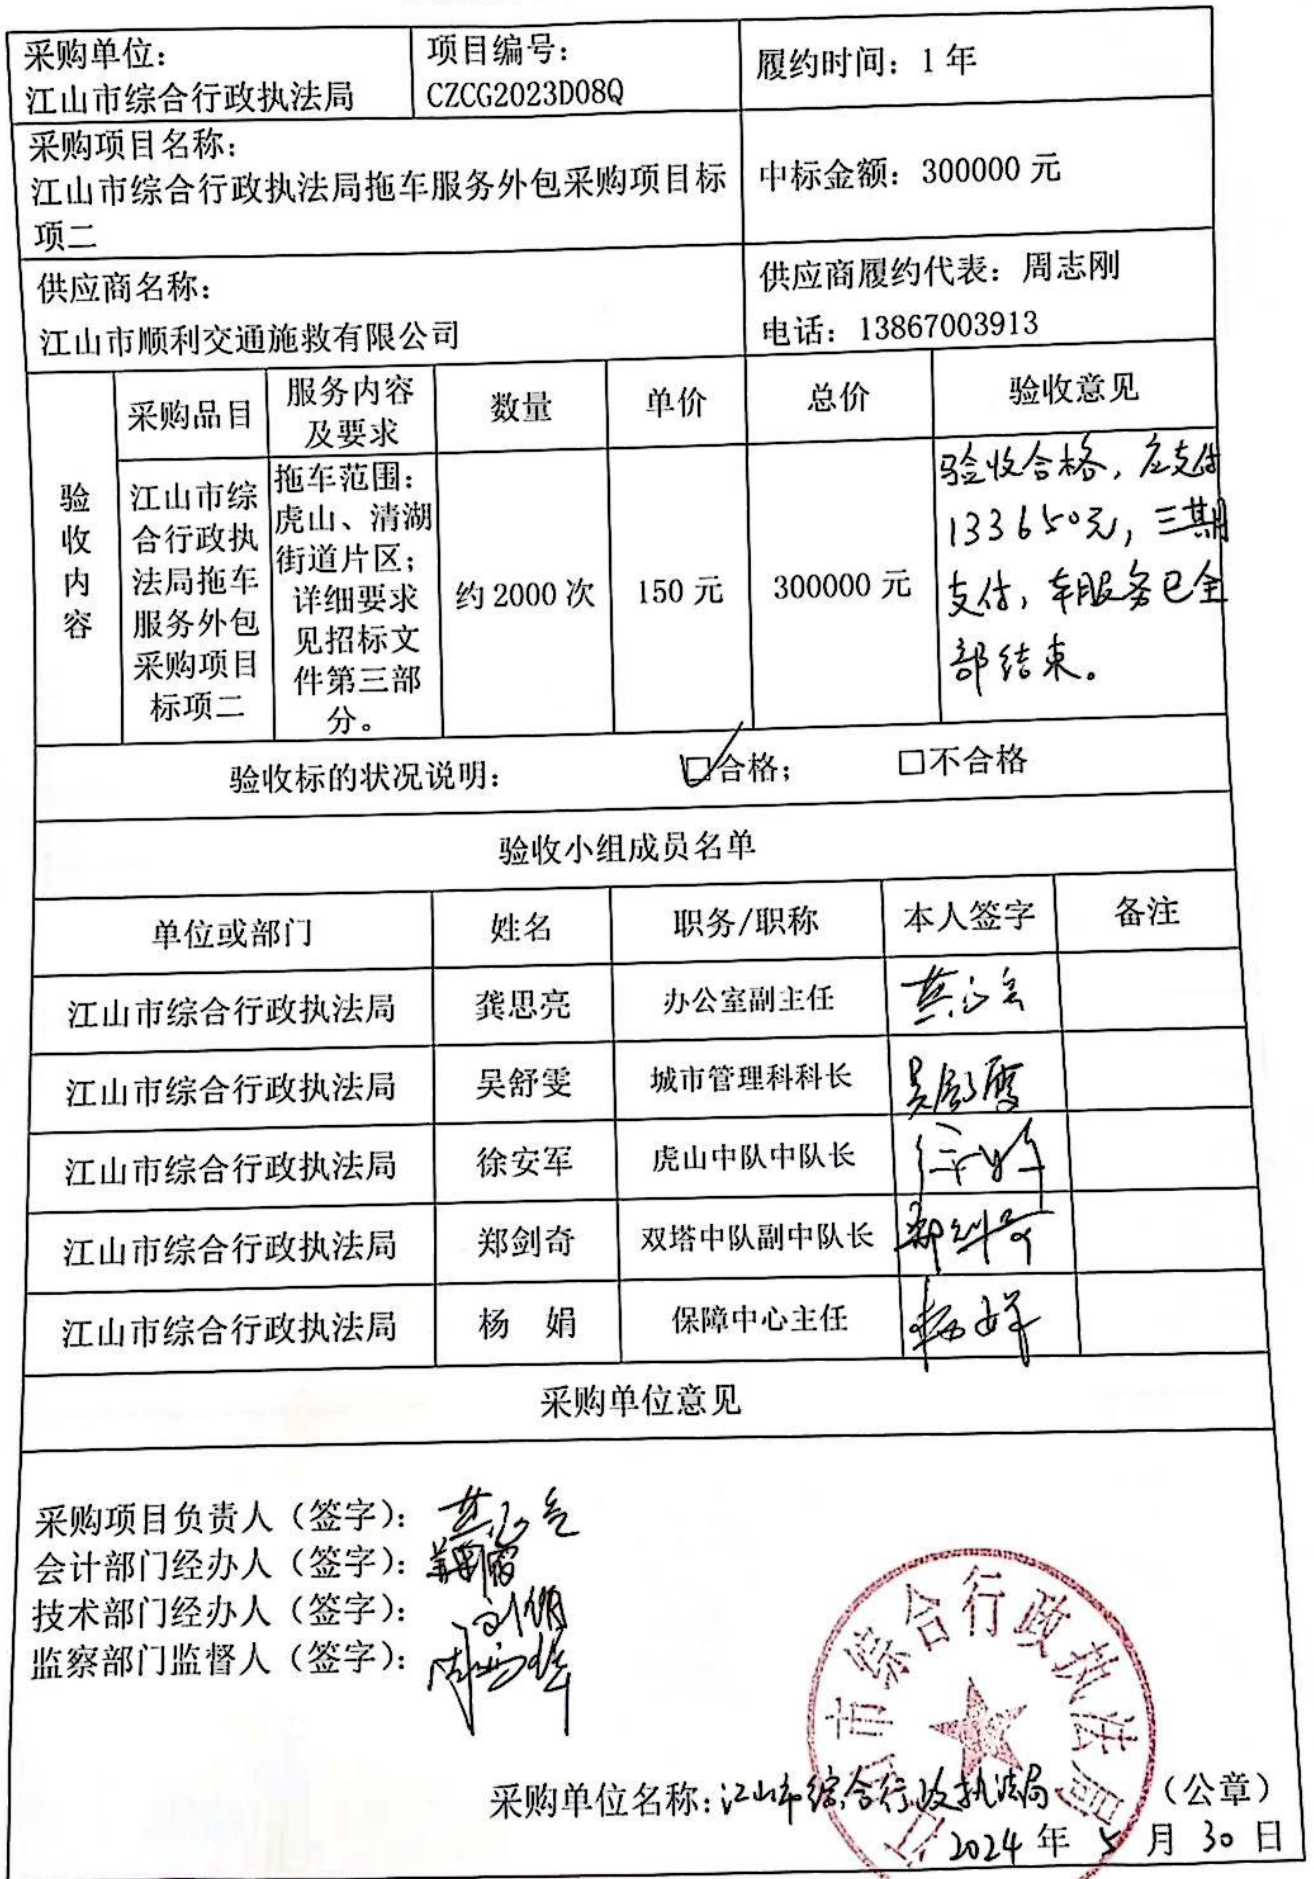 采购单位:
江山市综合行政执法局
项目编号:
CZCG2023D08Q
履约时间: 1 年
采购项目名称:
江山市综合行政执法局拖车服务外包采购项目标
项二
中标金额: 300000 元
供应商名称:
江山市顺利交通施救有限公司
供应商履约代表: 周志刚
电话: 13867003913
验
收
内
容
采购品目
服务内容
及要求
数量
单价
总价
验收意见
江山市综
合行政执
法局拖车
服务外包
采购项目
标项二
拖车范围:
虎山、清湖
街道片区;
详细要求
见招标文
件第三部
分。
约 2000 次
150 元
300000 元
验收合格, 应支付
133650元, 三期
支付, 车服务已全
部结束。
验收标的状况说明: ☑合格; □不合格
验收小组成员名单
单位或部门 姓名 职务/职称 本人签字 备注
江山市综合行政执法局 龚思亮 办公室副主任
江山市综合行政执法局 吴舒雯 城市管理科科长 吴舒雯
江山市综合行政执法局 徐安军 虎山中队中队长
江山市综合行政执法局 郑剑奇 双塔中队副中队长 郑剑奇
江山市综合行政执法局 杨 娟 保障中心主任 杨娟
采购单位意见
采购项目负责人（签字）:
会计部门经办人（签字）:
技术部门经办人（签字）:
监察部门监督人（签字）:
江山市综合行政执法局
采购单位名称: 江山市综合行政执法局 （公章）
2024 年 5 月 30 日